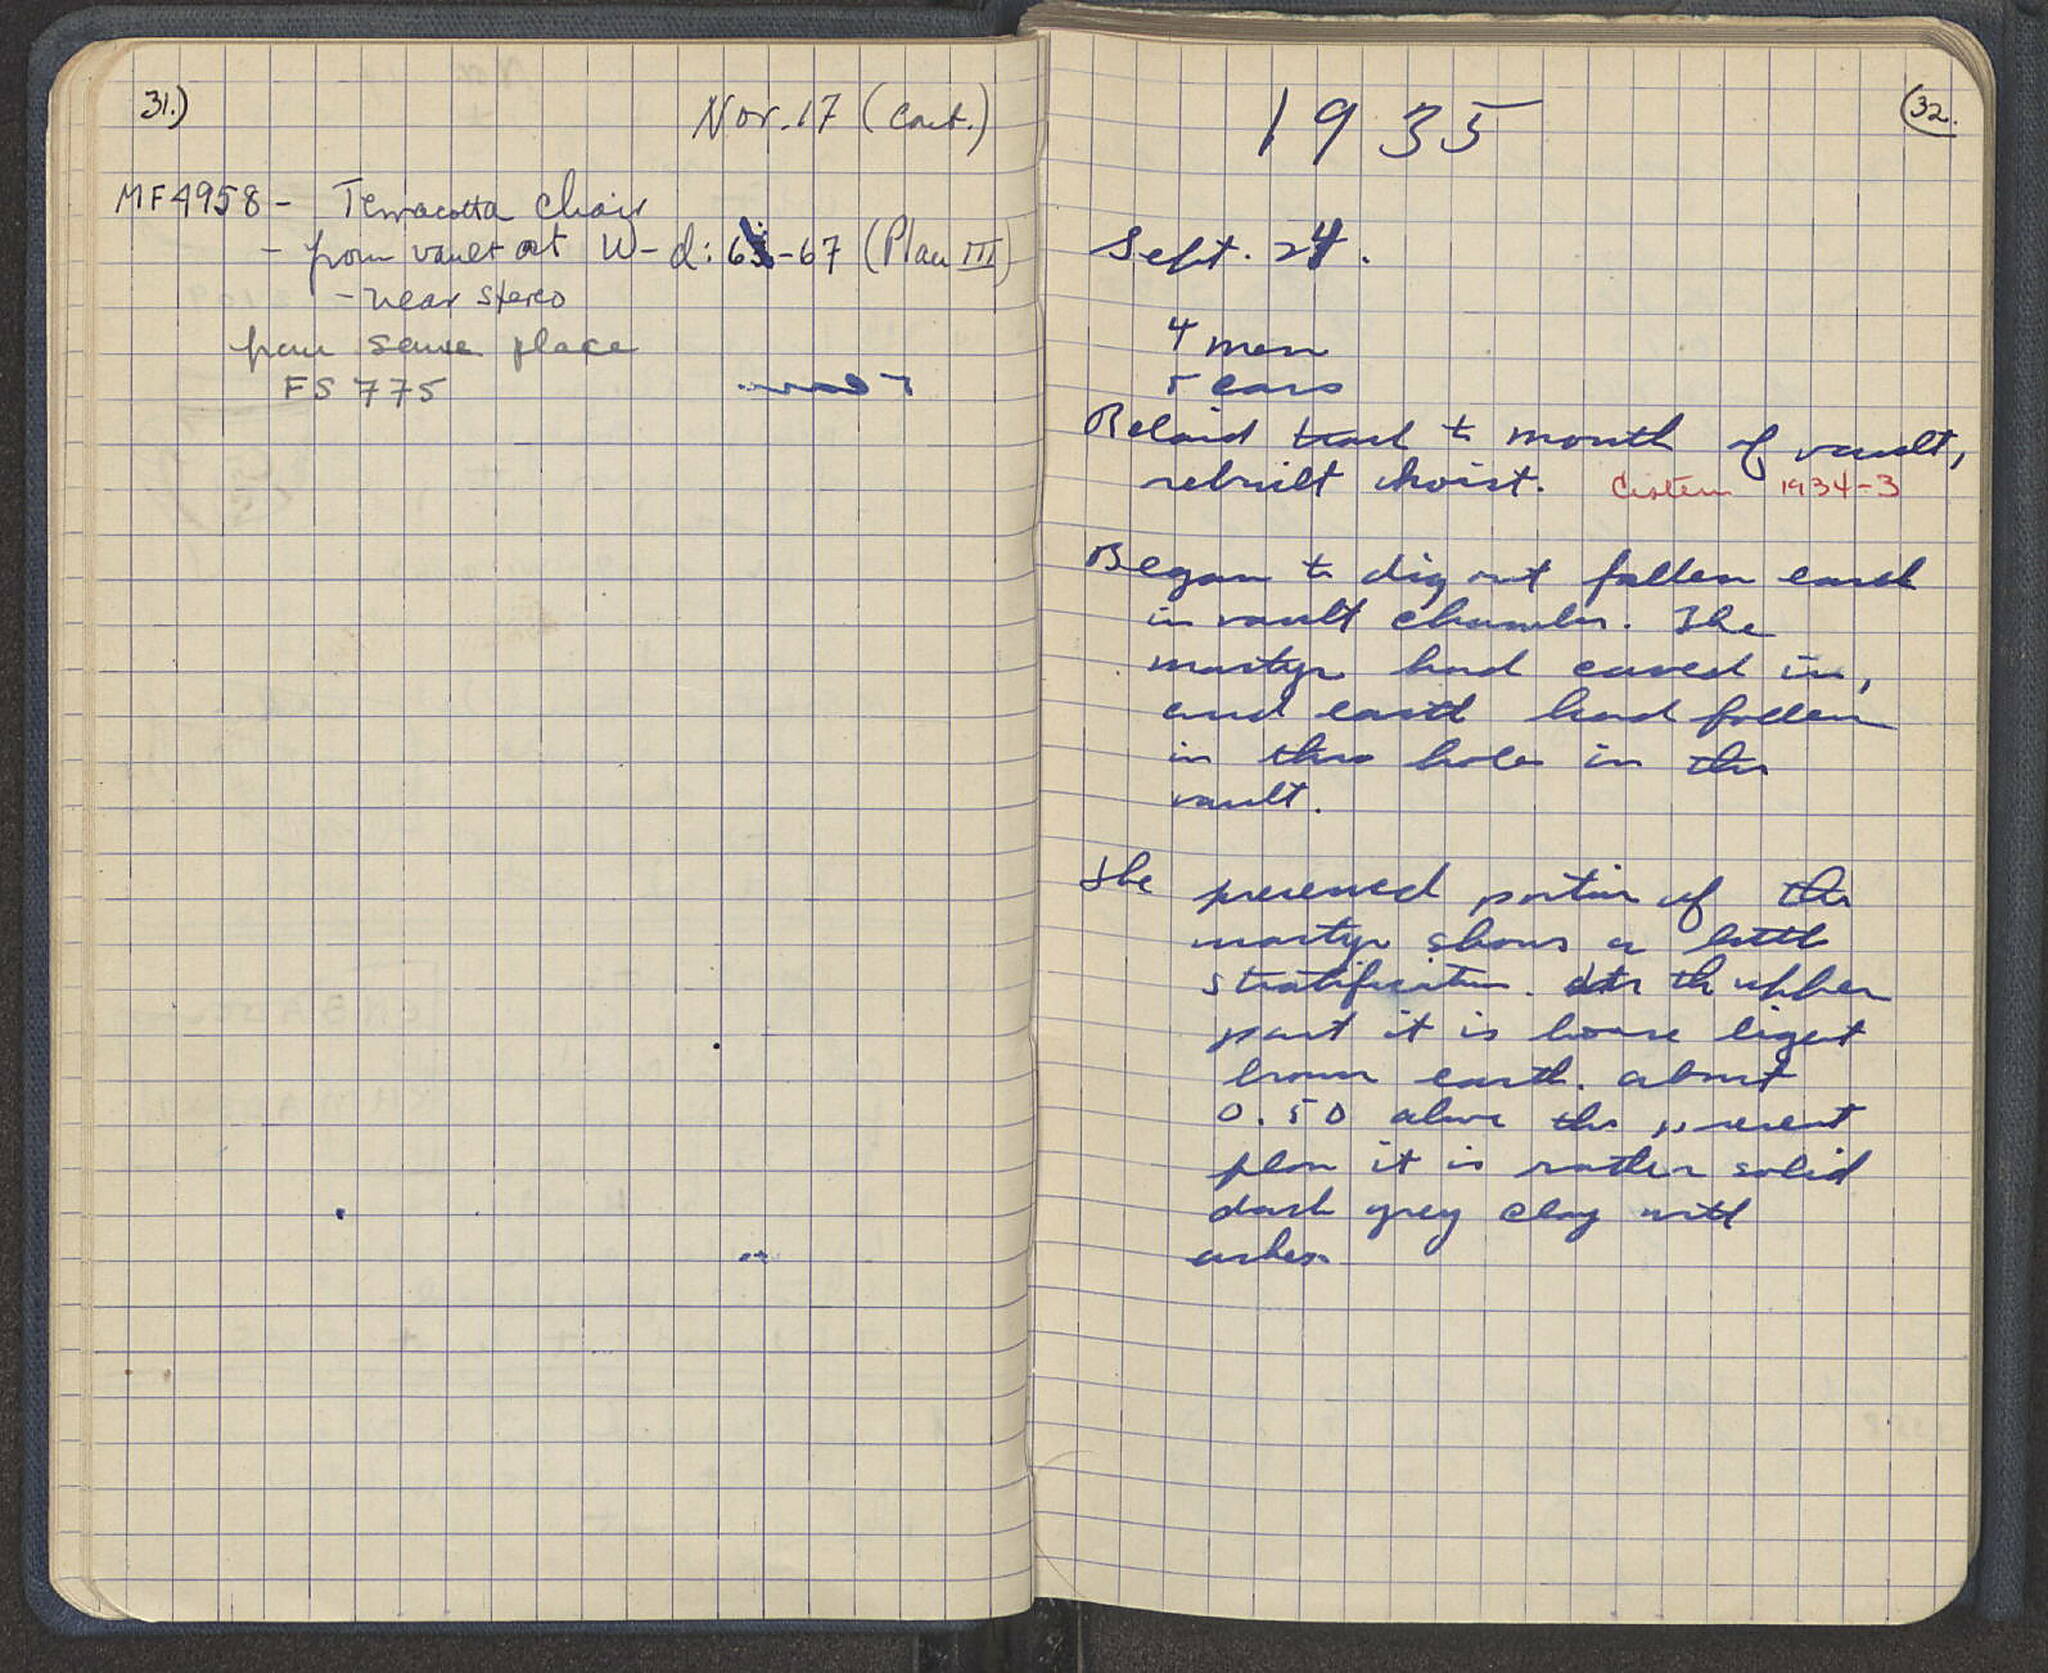 31.)
Nov. 17 (cont.)
MF 4958 - Terracotta chair
- from vault at W-d: 6 -67 (Plan III)
- near stereo
from same place
FS 775
32.
1935
Sept. 24.
4 men
5 cars
Relaid track to mouth of vault,
rebuilt hoist. Cistern 1934-3
Began to dig out fallen earth
in vault chamber. The
martyr had caved in,
and earth had fallen
in thro hole in the
vault.
The preserved portion of the
martyr shows a little
stratification. In the upper
part it is loose light
brown earth. about
0.50 above the present
floor it is rather solid
dark grey clay with
ashes.